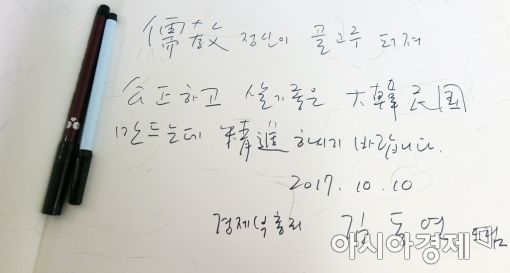 儒敎 정신이 골고루 퍼져
公正하고 살기좋은 大韓民國
만드는데 精進하시기 바랍니다.
2017. 10. 10
경제부총리 김동연 드림
아시아경제